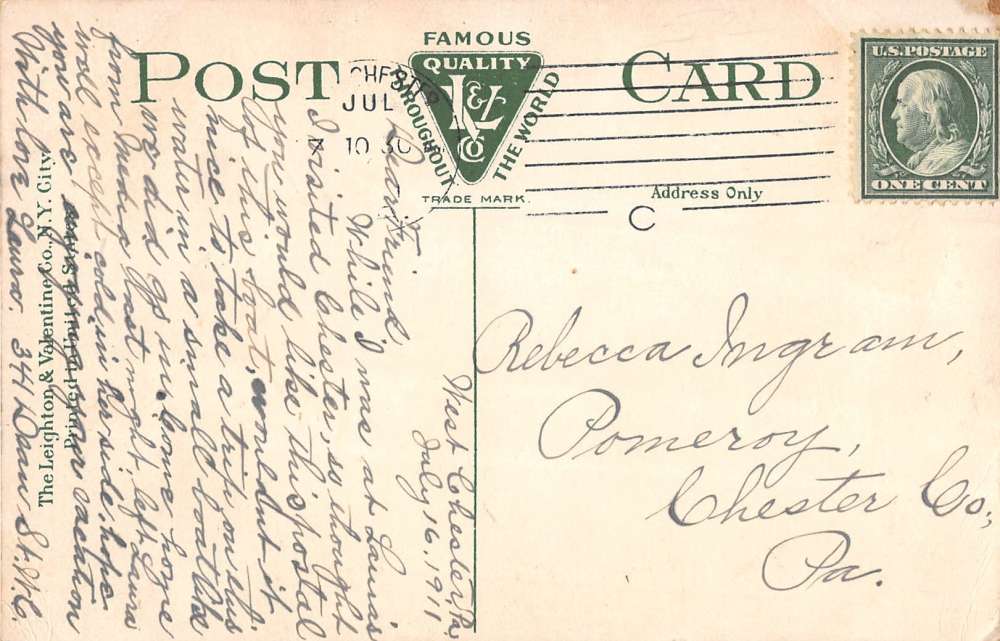 POST CARD
FAMOUS
QUALITY
L&V
Co
THROUGHOUT THE WORLD
TRADE MARK.
U.S. POSTAGE
ONE CENT
CHESTER
JUL
10 30
C
Address Only
Rebecca Ingram,
Pomeroy,
Chester Co,
Pa.
West Chester, Pa,
July 16, 1911
Dear Friend,
While I was at Laura's
I visited Chester, so thought
you would like this postal
of this boat, wouldnt it
nice to take a trip on this
water in a small boat like
we did
home
from Media last night left Laura
well except cold in her side, hope
you are vacation
With love Laura. 341 Dean St. W.C.
The Leighton & Valentine Co., N.Y. City.
Printed in United States